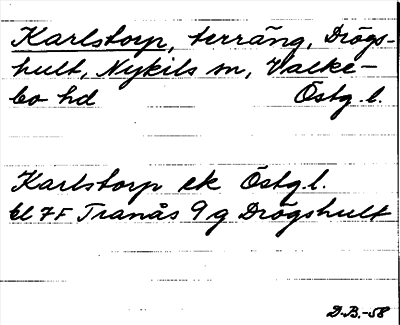 Karlstorp, terräng, Drögs-
hult, Nykils sn, Valke-
bo hd Östg. l.
Karlstorp ek Östg l.
bl 7F Tranås 9 g Drögshult
D.B.-58